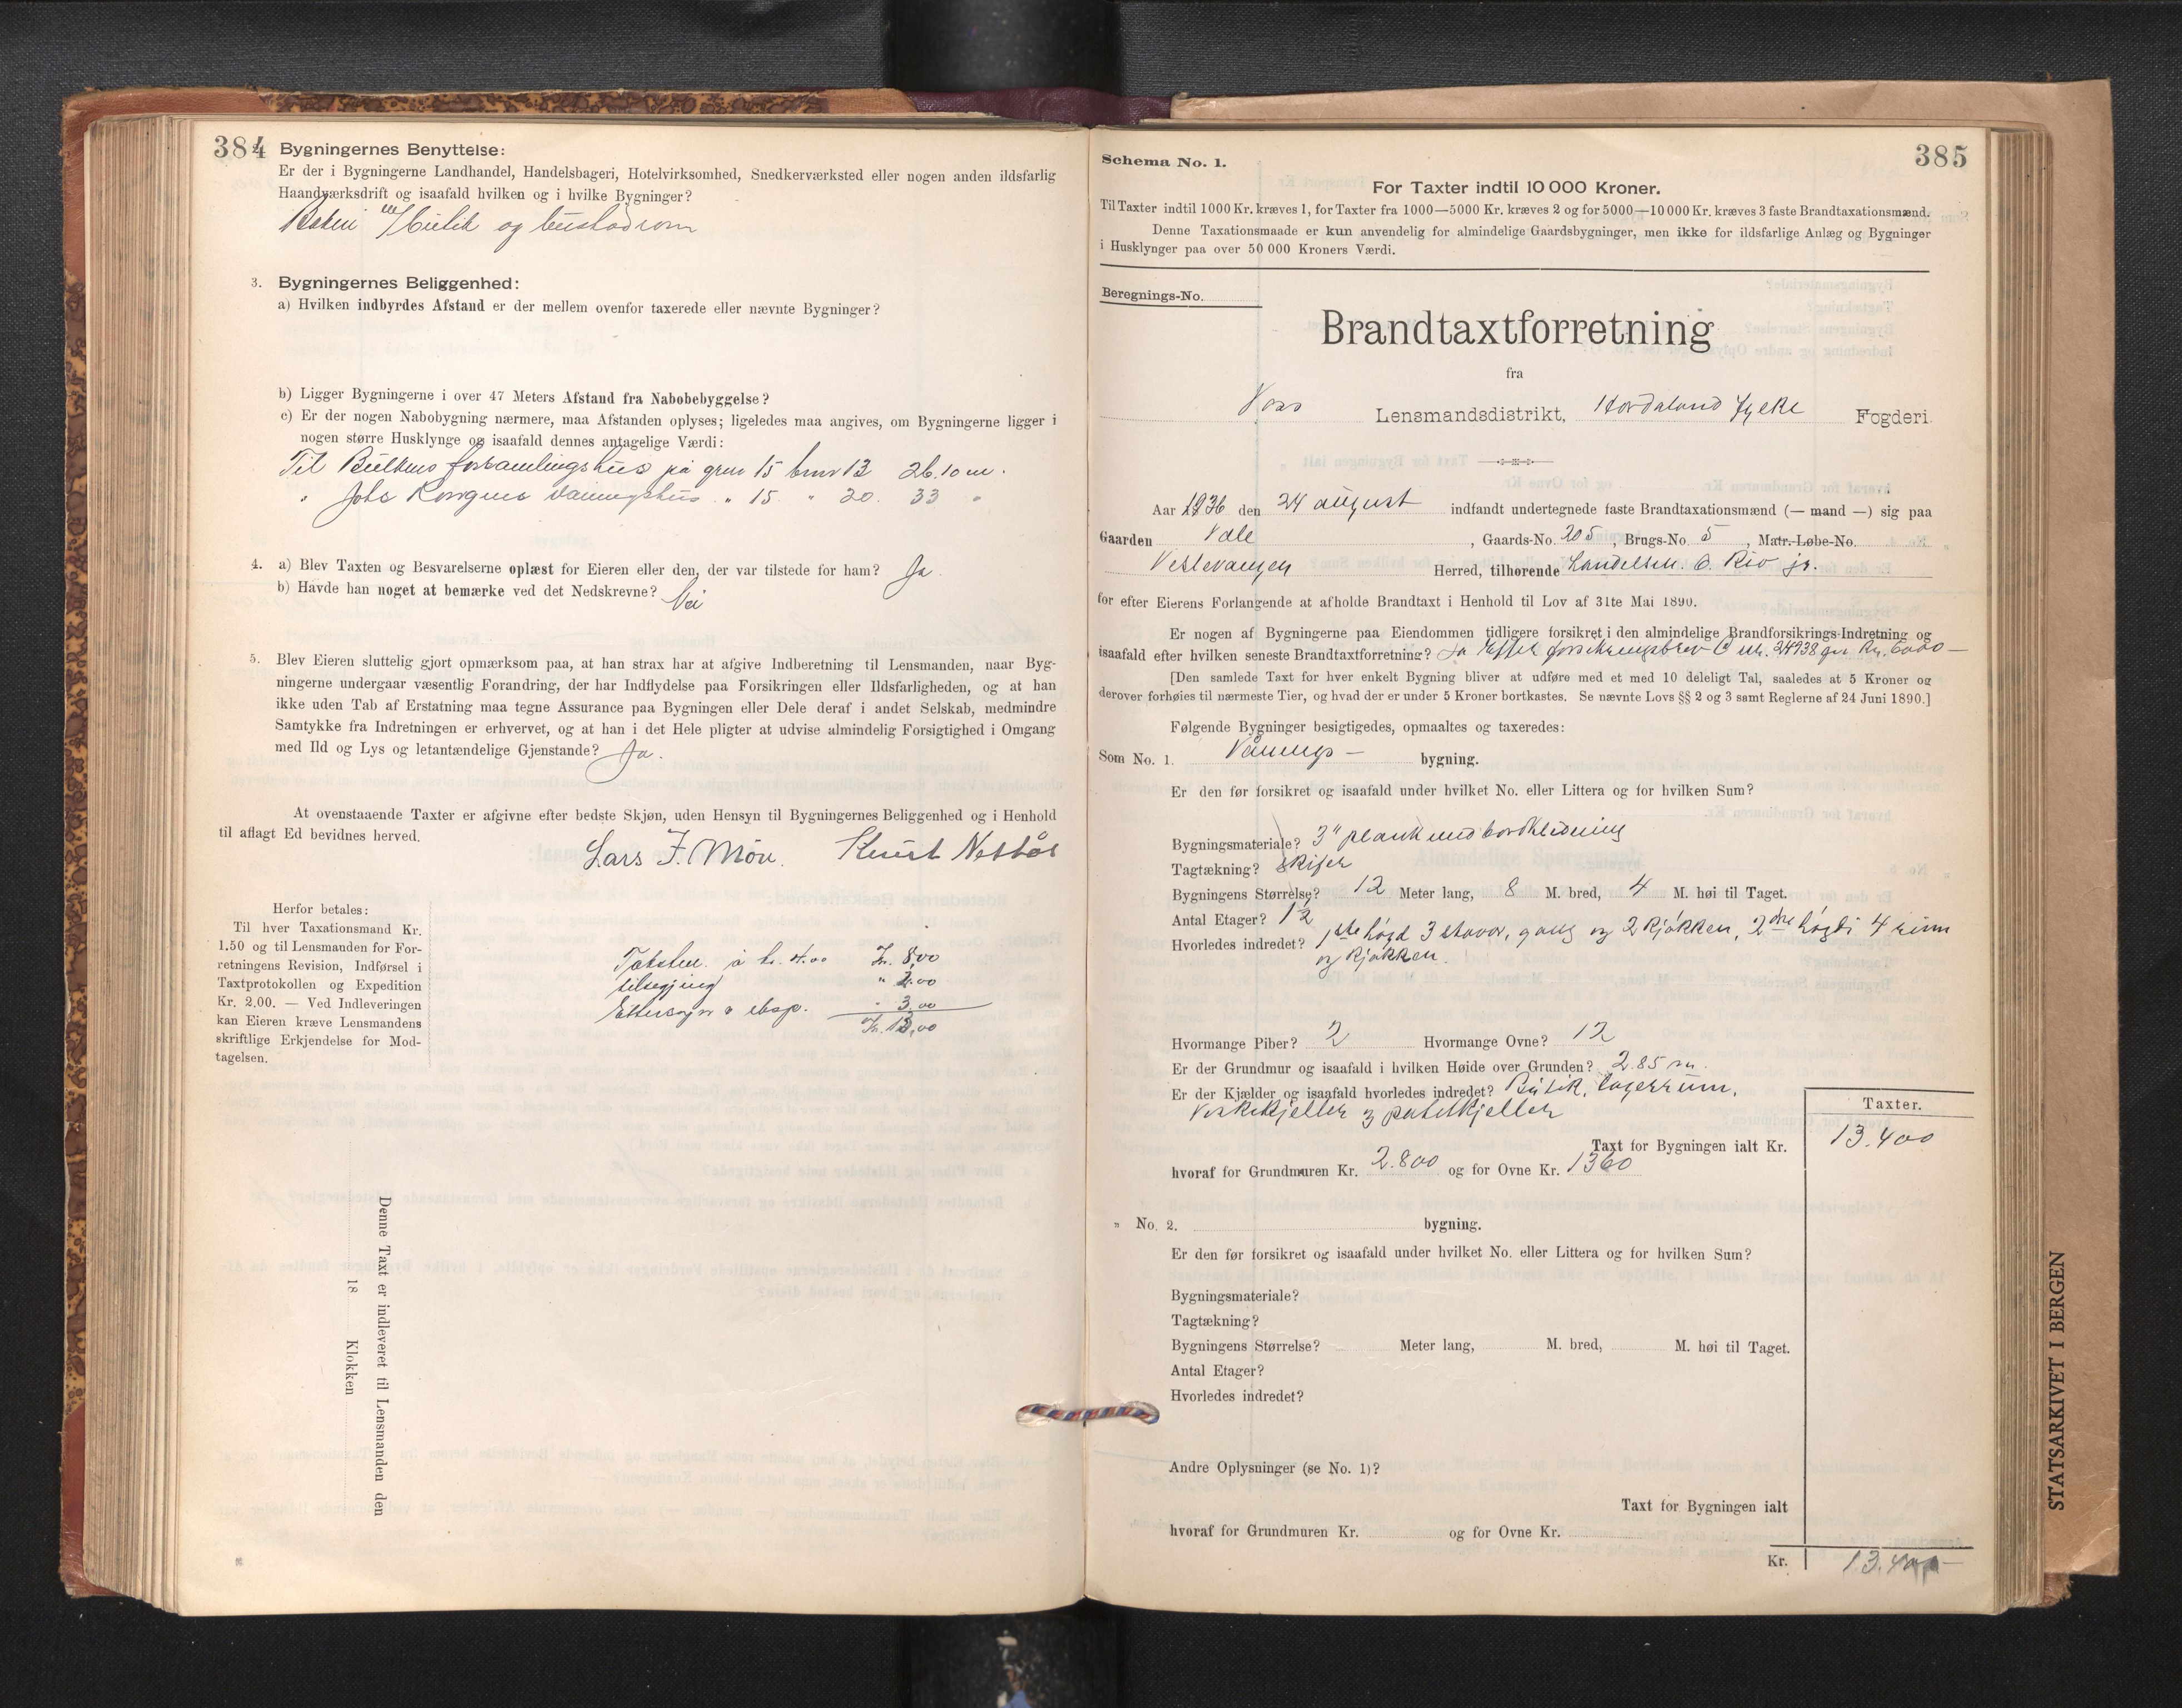 384
Bygningernes Benyttelse:
Er der i Bygningerne Landhandel, Handelsbageri, Hotelvirksomhed, Snedkerværksted eller nogen anden ildsfarlig
Haandværksdrift og isaafald hvilken og i hvilke Bygninger?
Bakeri m/butik og bustadrom
3. Bygningernes Beliggenhed:
a) Hvilken indbyrdes Afstand er der mellem ovenfor taxerede eller nævnte Bygninger?
b) Ligger Bygningerne i over 47 Meters Afstand fra Nabobebyggelse?
c) Er der nogen Nabobygning nærmere, maa Afstanden oplyses; ligeledes maa angives, om Bygningerne ligger i
nogen større Husklynge og isaafald dennes antagelige Værdi:
Til Bulkens forsamlingshus på gnr 15 bnr 13 26.10 m.
" Johs våningshus " 15 " 20. 33 "
4. a) Blev Taxten og Besvarelserne oplæst for Eieren eller den, der var tilstede for ham? Ja.
b) Havde han noget at bemærke ved det Nedskrevne? Nei
5. Blev Eieren sluttelig gjort opmærksom paa, at han strax har at afgive Indberetning til Lensmanden, naar Byg-
ningerne undergaar væsentlig Forandring, der har Indflydelse paa Forsikringen eller Ildsfarligheden, og at han
ikke uden Tab af Erstatning maa tegne Assurance paa Bygningen eller Dele deraf i andet Selskab, medmindre
Samtykke fra Indretningen er erhvervet, og at han i det Hele pligter at udvise almindelig Forsigtighed i Omgang
med Ild og Lys og letantændelige Gjenstande? Ja.
At ovenstaaende Taxter er afgivne efter bedste Skjøn, uden Hensyn til Bygningernes Beliggenhed og i Henhold
til aflagt Ed bevidnes herved.
Lars J. Møn. Knut Nesbø
Herfor betales:
Til hver Taxationsmand Kr.
1.50 og til Lensmanden for For-
retningens Revision, Indførsel i
Taxtprotokollen og Expedition
Kr. 2.00. — Ved Indleveringen
kan Eieren kræve Lensmandens
skriftlige Erkjendelse for Mod-
tagelsen.
Taksten à kr. 4.00 Kr. 8,00
tilsegjing " 2.00
Ettersyn o eksp. " 3.00
Kr. 13,00
Denne Taxt er indleveret til Lensmanden den
18 Klokken
385
Schema No. 1.
For Taxter indtil 10 000 Kroner.
Til Taxter indtil 1000 Kr. kræves 1, for Taxter fra 1000—5000 Kr. kræves 2 og for 5000—10000 Kr. kræves 3 faste Brandtaxationsmænd.
Denne Taxationsmaade er kun anvendelig for almindelige Gaardsbygninger, men ikke for ildsfarlige Anlæg og Bygninger
i Husklynger paa over 50 000 Kroners Værdi.
Beregnings-No.
Brandtaxtforretning
fra
Voss Lensmandsdistrikt, Hordaland fylke Fogderi
Aar 1936 den 24 august indfandt undertegnede faste Brandtaxationsmænd (— mand —) sig paa
Gaarden Vale, Gaards-No. 205, Brugs-No. 5, Matr.-Løbe-No.
Vestevangen Herred, tilhørende Handelsm. O. Rio jr.
for efter Eierens Forlangende at afholde Brandtaxt i Henhold til Lov af 31te Mai 1890.
Er nogen af Bygningerne paa Eiendommen tidligere forsikret i den almindelige Brandforsikrings-Indretning og
isaafald efter hvilken seneste Brandtaxtforretning? Ja Efter forsikringsbrev C nr. 24938 for Kr. 6000 —
[Den samlede Taxt for hver enkelt Bygning bliver at udføre med et med 10 deleligt Tal, saaledes at 5 Kroner og
derover forhøies til nærmeste Tier, og hvad der er under 5 Kroner bortkastes. Se nævnte Lovs §§ 2 og 3 samt Reglerne af 24 Juni 1890.]
Følgende Bygninger besigtigedes, opmaaltes og taxeredes:
Som No. 1. Vånings — bygning.
Er den før forsikret og isaafald under hvilket No. eller Littera og for hvilken Sum?
Bygningsmateriale? 3" plank med bordkledning
Tagtækning? skifer
Bygningens Størrelse? 12 Meter lang, 8 M. bred, 4 M. høi til Taget.
Antal Etager? 1½
Hvorledes indredet? 1ste høgd 3 stover, gang og 2 kjøkken, 2dre høgdi 4 rum
og kjøkken.
Hvormange Piber? 2 Hvormange Ovne? 12
Er der Grundmur og isaafald i hvilken Høide over Grunden? 2.85 m.
Er der Kjælder og isaafald hvorledes indredet? Butik, lagerrum,
Vaskekjeller og potetkjeller
Taxter.
Taxt for Bygningen ialt Kr. 13.400
hvoraf for Grundmuren Kr. 2.800 og for Ovne Kr. 1360
" No. 2. bygning.
Er den før forsikret og isaafald under hvilket No. eller Littera og for hvilken Sum?
Bygningsmateriale?
Tagtækning?
Bygningens Størrelse? Meter lang, M. bred, M. høi til Taget.
Antal Etager?
Hvorledes indredet?
Andre Oplysninger (se No. 1)?
Taxt for Bygningen ialt
hvoraf for Grundmuren Kr. og for Ovne Kr.
Kr. 13.400 —
STATSARKIVET I BERGEN